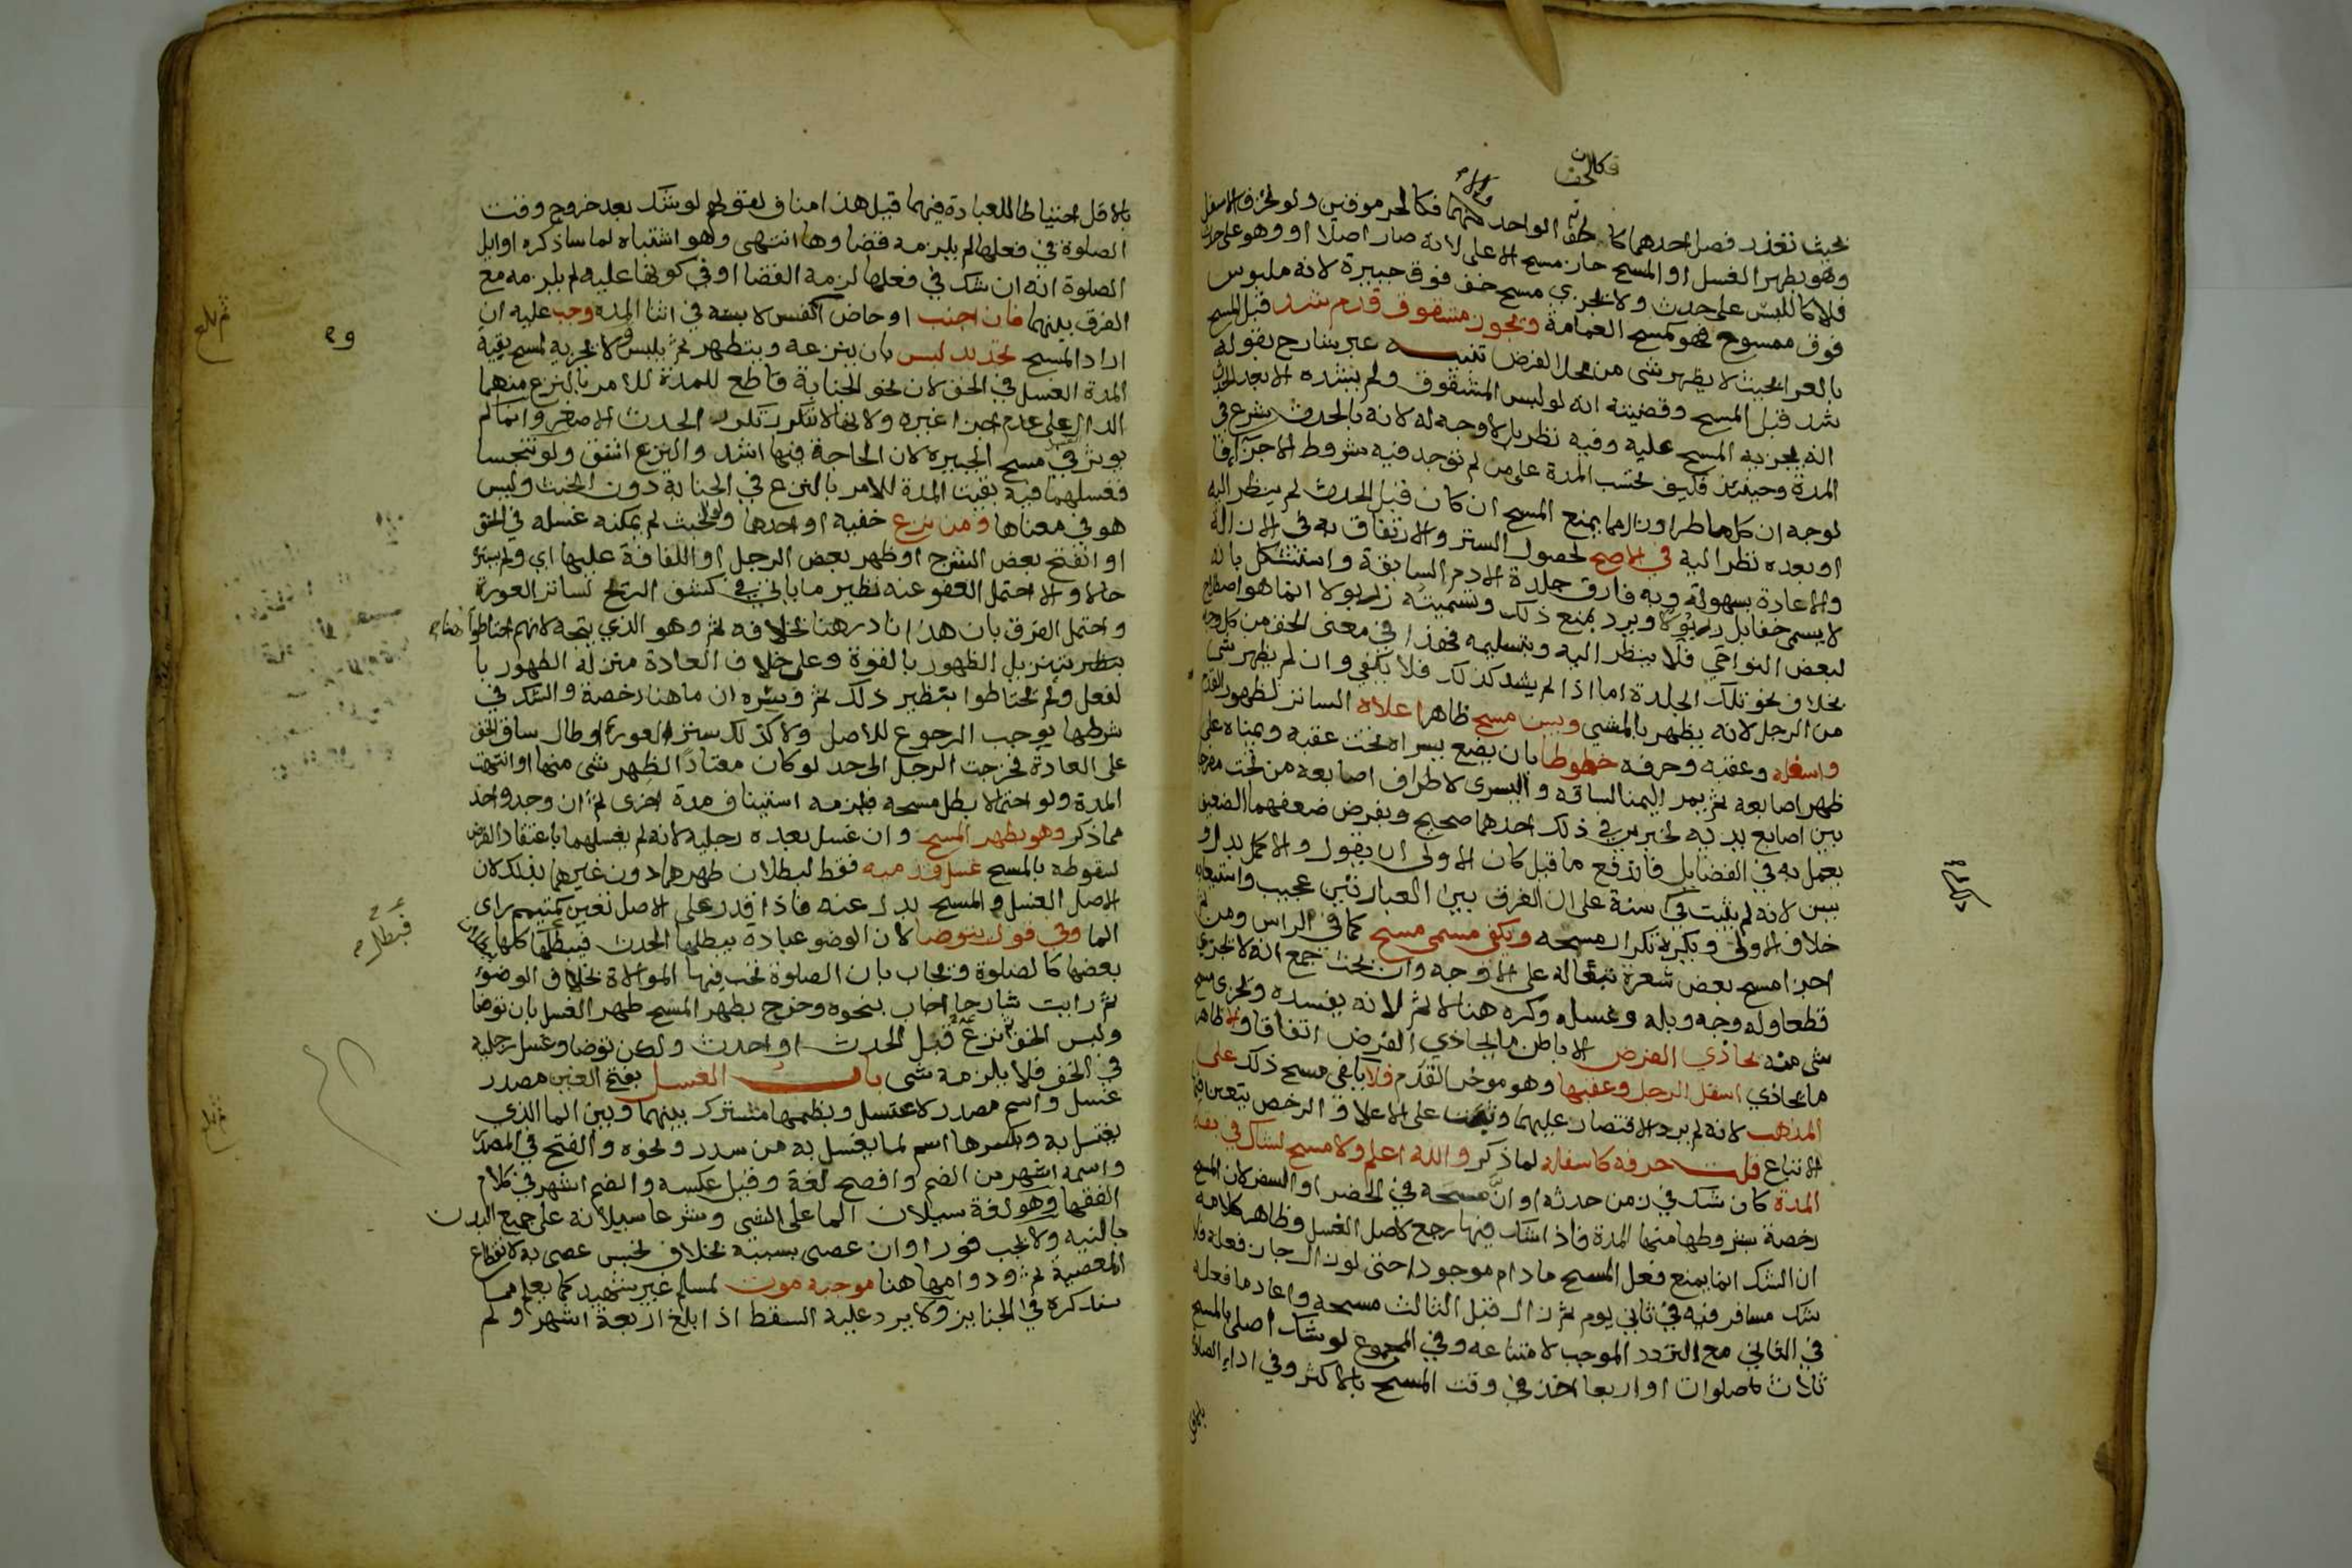 فكالخف
بحيث تعذر فصل احدهما كا الواحد منهما فكالجرموقين ولو تخرق الاسفل
وهو بطهر الغسل او المسح جاز مسح الاعلى لانه صار اصلا او وهو على حدث
فلا كاللبس على حدث ولا يجزي مسح خف فوق جبيرة لانه ملبوس
فوق ممسوح فهو كمسح العمامة ويجوز مشقوق قدم شد قبل المسح
بالعرا بحيث لا يظهر شى من محل الفرض تنبيه عبر شارح بقوله
شد قبل المسح وقضيته انه لو لبس المشقوق ولم يشده الا بعد الحدث
انه يجزيه المسح عليه وفيه نظر بل لا وجه له لانه بالحدث شرع في
المدة وحينئذ فكيف تحسب المدة على من لم توجد فيه شروط الاجزا فا
لوجه ان كل ما طرا وزال مما يمنع المسح ان كان قبل الحدث لم ينظر اليه
او بعده نظر اليه في الاصح لحصول الستر والارتفاق به في الازالة
والاعادة بسهولة وبه فارق جلدة الادم السابقة واستشكل بانه
لا يسمى خفا بل زربولا ويرد بمنع ذلك وتسميته زربولا انما هو اصطلاح
لبعض النواحي فلا ينظر اليه وبتسليمه فهذا في معنى الخف من كل وجه
بخلاف نحو تلك الجلدة اما اذا لم يشد كذلك فلا يكفي وان لم يظهر شى
من الرجل لانه يظهر بالمشي ويسن مسح ظاهر اعلاه الساتر لظهور القدم
واسفله وعقبه وحرفه خطوطا بان يضع يسراه تحت عقبه ويمناه على
ظهر اصابعه ثم يمر اليمنا لساقه واليسرى لاطراف اصابعه من تحت مفرجا
بين اصابع يديه لخبرين في ذلك احدهما صحيح وبفرض ضعفهما الضعيف
يعمل به في الفضايل فاندفع ما قيل كان الاولى ان يقول والاكمل بدل و
يسن لانه لم يثبت في سنة على ان الفرق بين العبارتين عجيب واستيعابه
خلاف الاولى ويكره تكرار مسحه ويكفي مسمى مسح كما في الراس ومن ثم
اجزا مسح بعض شعرة تبعا له على الاوجه وان بحث جمع انه لا يجزي
قطعا وله وجه وبله وغسله وكره هنا لا ثم لانه يفسده ويجزى مسح
شى منه يحاذي الفرض الا باطن ما يحاذي الفرض اتفاقا ولا ظاهر
ما يحاذي اسفل الرجل وعقبها وهو موخر القدم فلا يكفي مسح ذلك على
المذهب لانه لم يرد الاقتصار عليهما وثبت على الاعلا والرخص يتعين فيها
الاتباع قلت حرفه كاسفله لما ذكر والله اعلم ولا مسح لشاك في بقا
المدة كان شك في زمن حدثه او ان مسحه في الحضر او السفر لان المسح
رخصة بشروطها منها المدة فاذا شك فيها رجع لاصل الغسل وظاهر كلامه
ان الشك انما يمنع فعل المسح ما دام موجودا حتى لو زال جاز فعله فلو
شك مسافر فيه في ثاني يوم ثم زال قبل الثالث مسحه واعاد ما فعله
في الثاني مع التردد الموجب لامتناعه وفي المجموع لو شك اصلى بالمسح
ثلاث صلوات او اربعا اخذ في وقت المسح بالاكثر وفي اداء الصلاة
بالاقل احتياطا للعبادة فيهما قيل هذا مناف لقولهم لو شك بعد خروج وقت
الصلوة في فعلها لم يلزمه قضاوها انتهى وهو اشتباه لما ساذكره اوايل
الصلوة انه ان شك في فعلها لزمه القضا او في كونها عليه لم يلزمه مع
الفرق بينهما فان اجنب او حاض او نفس لابسه في اثنا المدة وجب عليه ان
اراد المسح تجديد لبس بان ينزعه ويتطهر ثم يلبس ولا يجزيه لمسح بقية
المدة الغسل في الخف لان نحو الجنابة قاطع للمدة للامر بالنزع منهما
الدال على عدم اجزا غيره ولانها لا تتكرر تكرر الحدث الاصغر وانما لم
يوثر في مسح الجبيرة لان الحاجة فيها اشد والنزع اشق ولو تنجسا
فغسلهما فيه بقيت المدة للامر بالنزع في الجنابة دون الخبث وليس
هو في معناها ومن نزع خفيه او احدهما ولو لخبث لم يمكنه غسله في الخف
او انفتح بعض الشرج او ظهر بعض الرجل او اللفافة عليها اي ولم يستره
حالا والا احتمل العفو عنه نظير ما ياتي في كشف الريح لساتر العورة
واحتمل الفرق بان هذا نادر هنا بخلافه ثم وهو الذي يتجه لانهم احتاطوا هنا
بتنزيل الظهور بالقوة وعلى خلاف العادة منزلة الظهور با
لفعل ولم يحتاطوا بنظير ذلك ثم وسره ان ما هنا رخصة والشك في
شرطها يوجب الرجوع للاصل ولا كذلك ستر العورة او طال ساق الخف
على العادة فخرجت الرجل الى حد لو كان معتادا لظهر شى منها او انتهت
المدة ولو احتمالا بطل مسحه فلزمه استيناف مدة اخرى ثم ان وجد واحد
مما ذكر وهو بطهر المسح وان غسل بعده رجليه لانه لم يغسلهما باعتقاد الفرض
لسقوطه بالمسح غسل قدميه فقط لبطلان طهرهما دون غيرهما بذلك لان
الاصل الغسل والمسح بدل عنه فاذا قدر على الاصل تعين كمتيمم راى
الما وفي قول يتوضا لان الوضو عبادة يبطلها الحدث فيبطل كلها ببطلان
بعضها كالصلوة ويجاب بان الصلوة تجب فيها الموالاة بخلاف الوضوء
ثم رايت شارحا اجاب بنحوه وخرج بطهر المسح طهر الغسل بان توضا
ولبس الخف ثم نزعه قبل الحدث او احدث ولكن توضا وغسل رجليه
في الخف فلا يلزمه شى باب الغسل بفتح الغين مصدر
غسل واسم مصدر لاغتسل وبضمها مشترك بينهما وبين الما الذي
يغتسل به وبكسرها اسم لما يغسل به من سدر ونحوه والفتح في المصدر
واسمه اشهر من الضم وافصح لغة وقيل عكسه والضم اشهر في كلام
الفقها وهو لغة سيلان الما على الشى وشرعا سيلانه على جميع البدن
بالنيه ولا يجب فورا وان عصى بسببه بخلاف نجس عصى به لانقطاع
المعصية ثم ودوامها هنا موجبه موت لمسلم غير شهيد كما يعلم مما
سنذكره في الجنايز ولا يرد عليه السقط اذا بلغ اربعة اشهر ولم